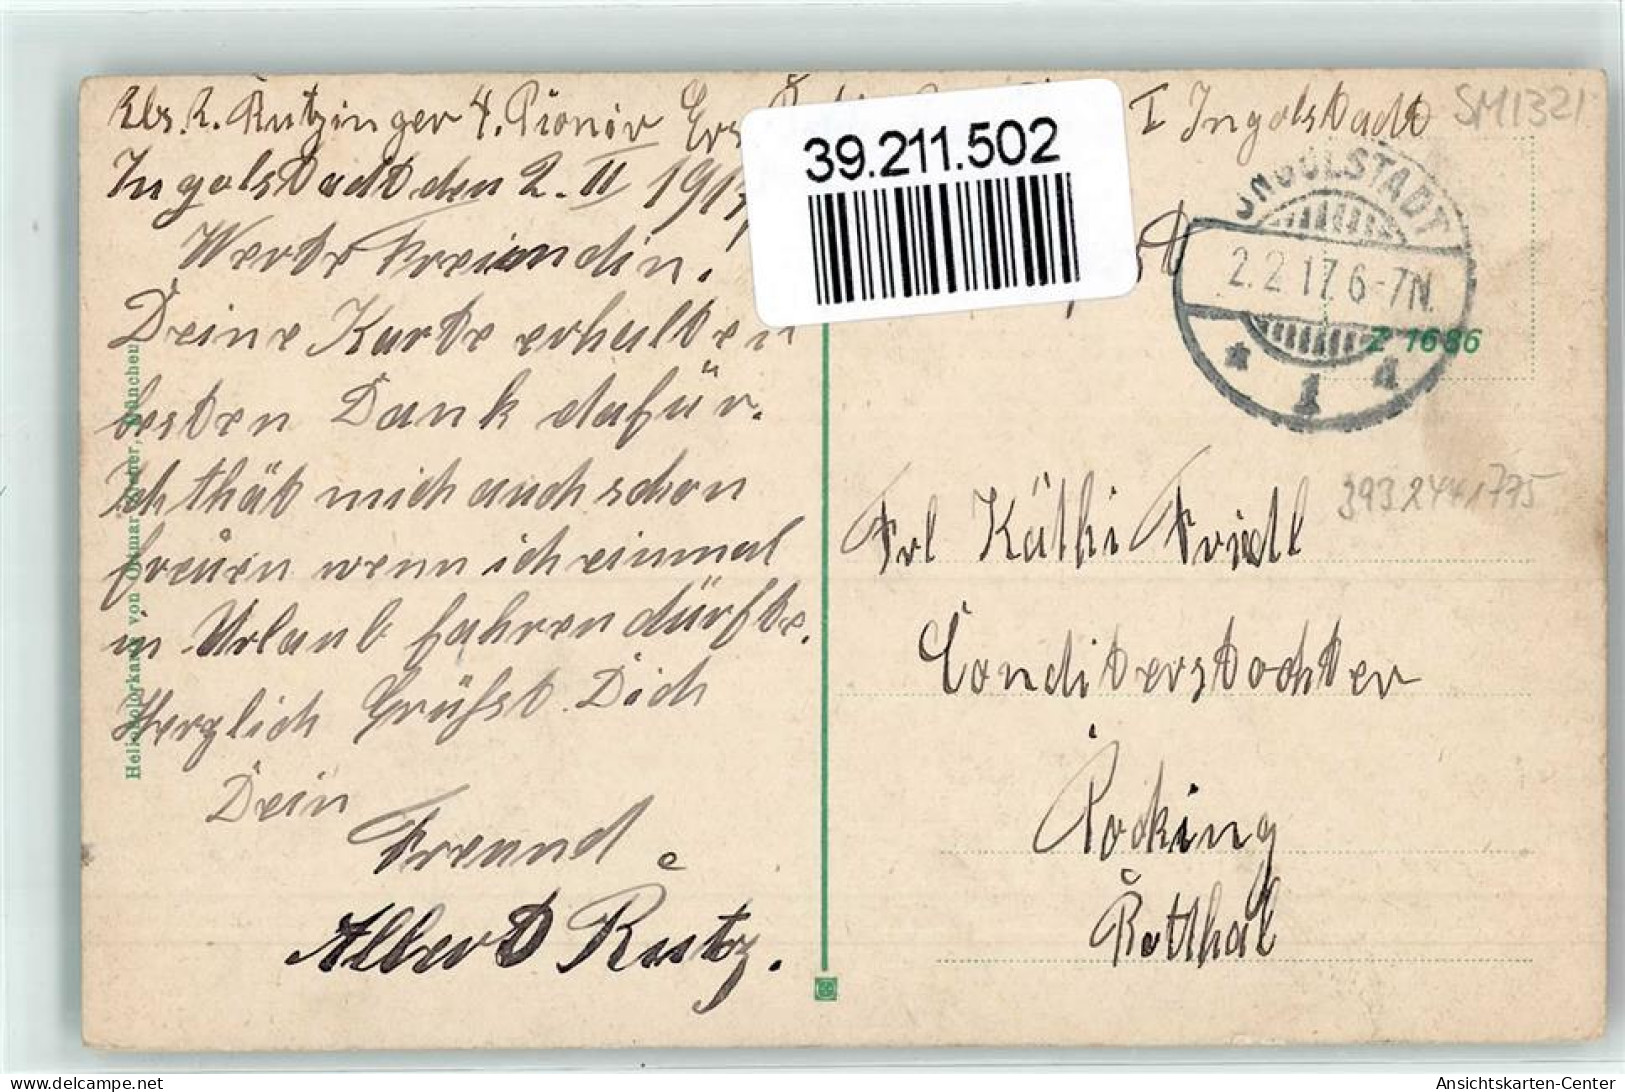 Abs. R. Rutzinger 4. Pionir Ers I Ingolstadt
SM1321
Ingolstadt den 2. II 1917
39.211.502
INGOLSTADT
2.2.17.6-7N.
1
Z 1686
Werte Freiundin!
Deine Karte erhalten
besten Dank dafür.
Ich thät mich auch schon
freuen wenn ich einmal
in Urlaub fahren dürfte.
Herzlich Grüßt Dich
Dein
Freund
Albert Rutz.
Heliokolorkarte von Ottmar Zieher, München
3932441775
Frl Käthi Friedl
Conditerstochter
Pocking
Rotthal
Ansichtskarten-Center
delcampe.net